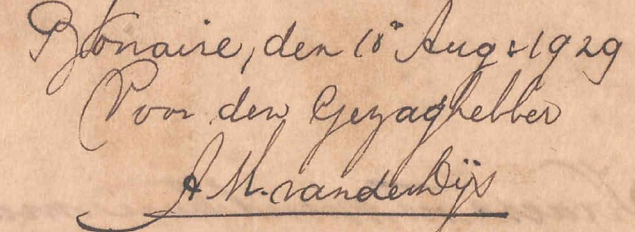 Bonaire, den 18n Aug s 1929
Voor den Gezaghebber
A M. van der Dijs